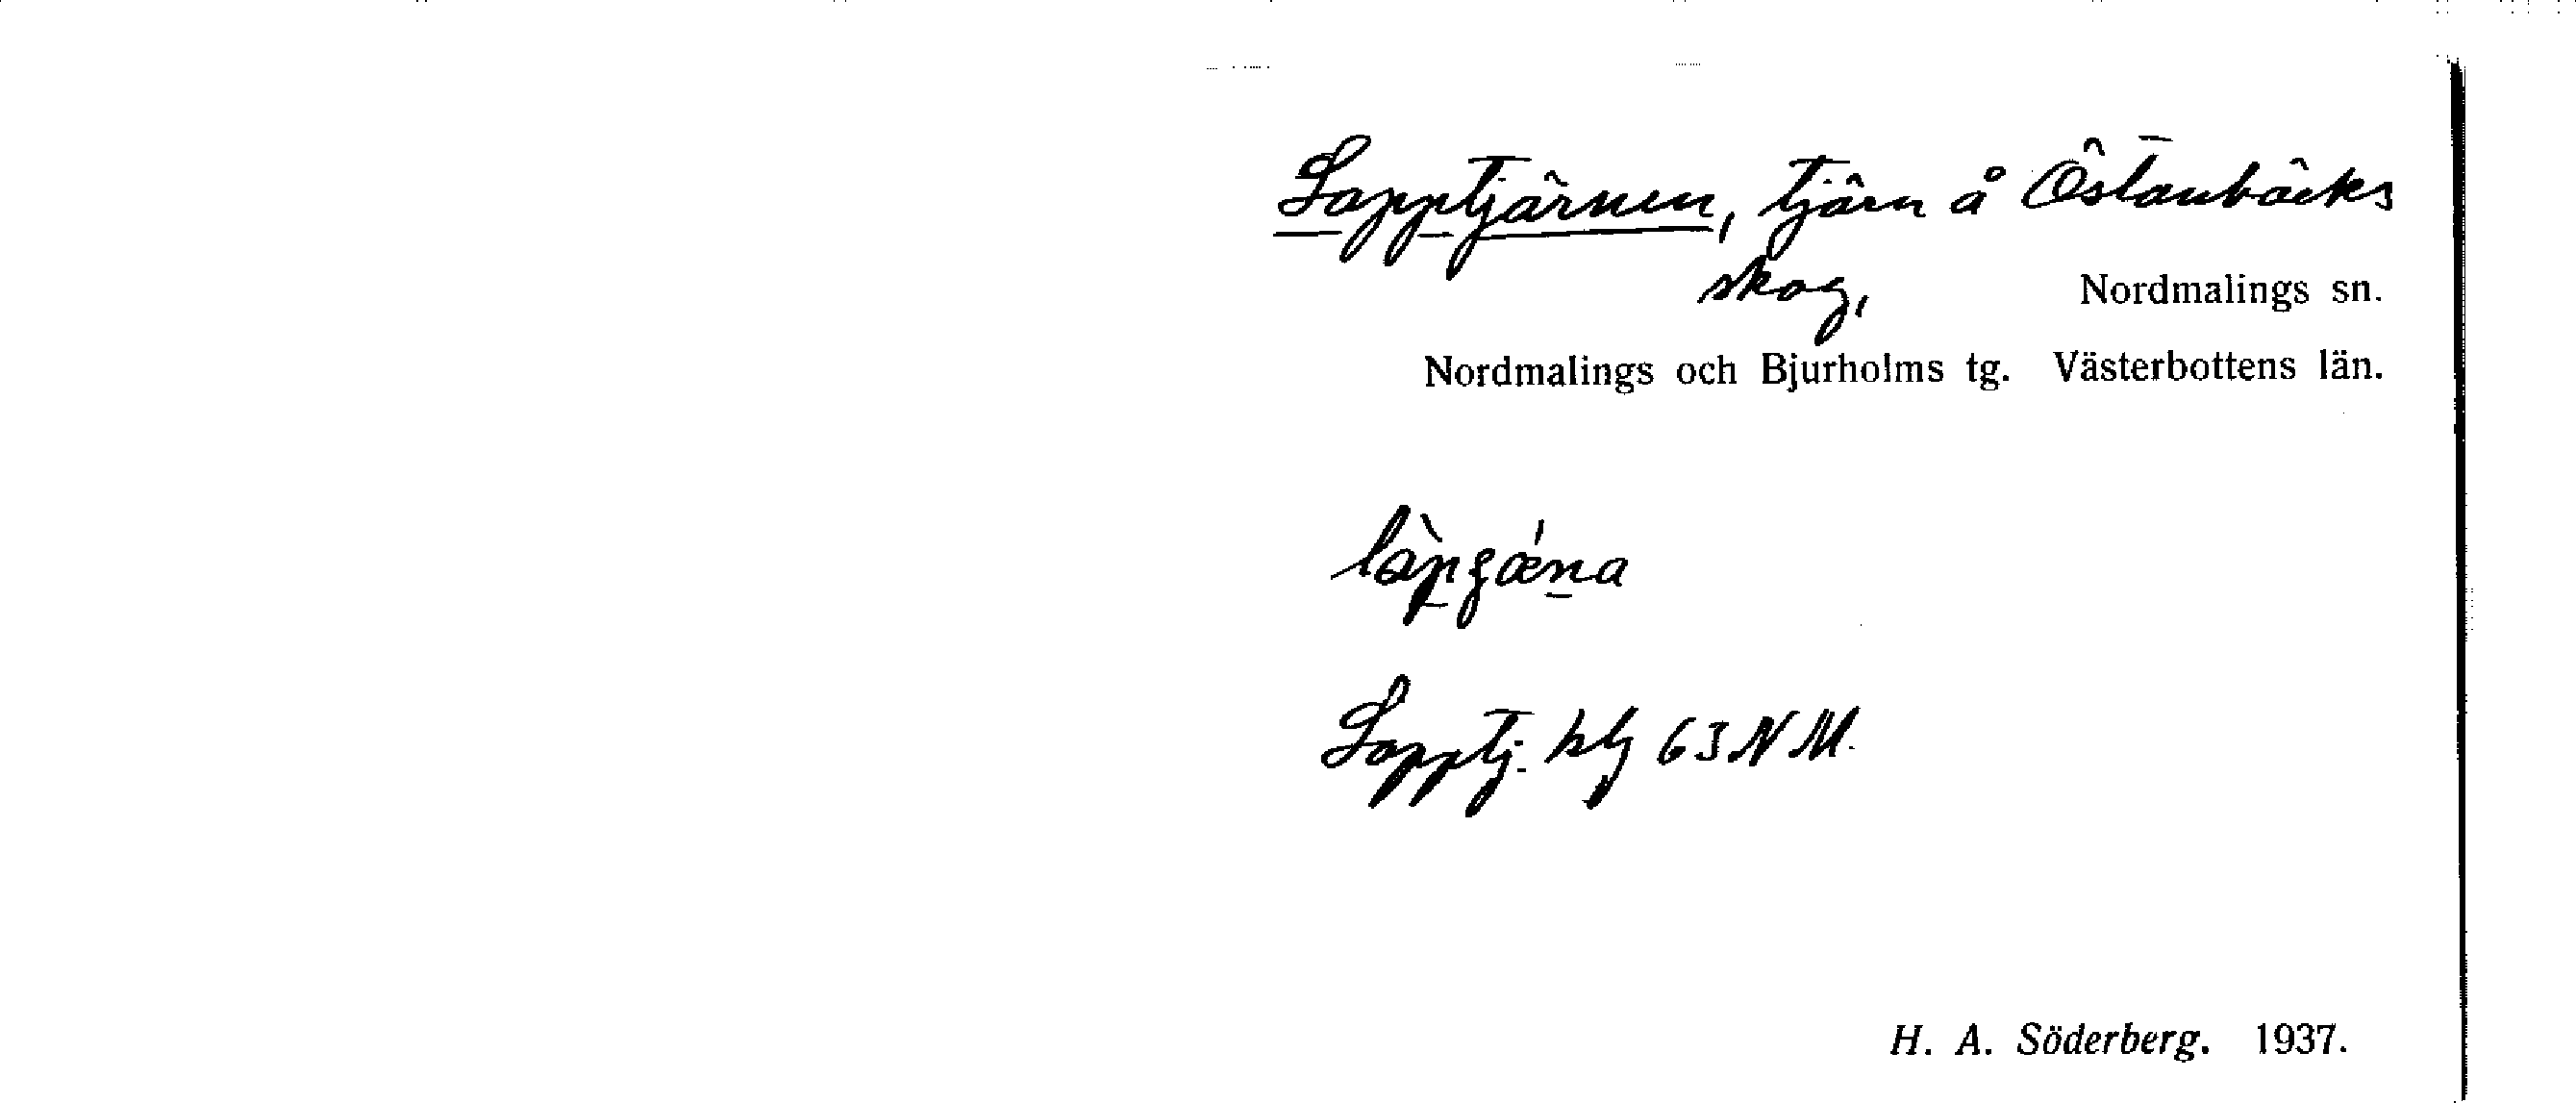 Lapptjärnen, tjärn å Östanbäcks
skog,
Nordmalings sn.
Nordmalings och Bjurholms tg. Västerbottens län.
Lapptj. blg 63 NM.
H. A. Söderberg. 1937.